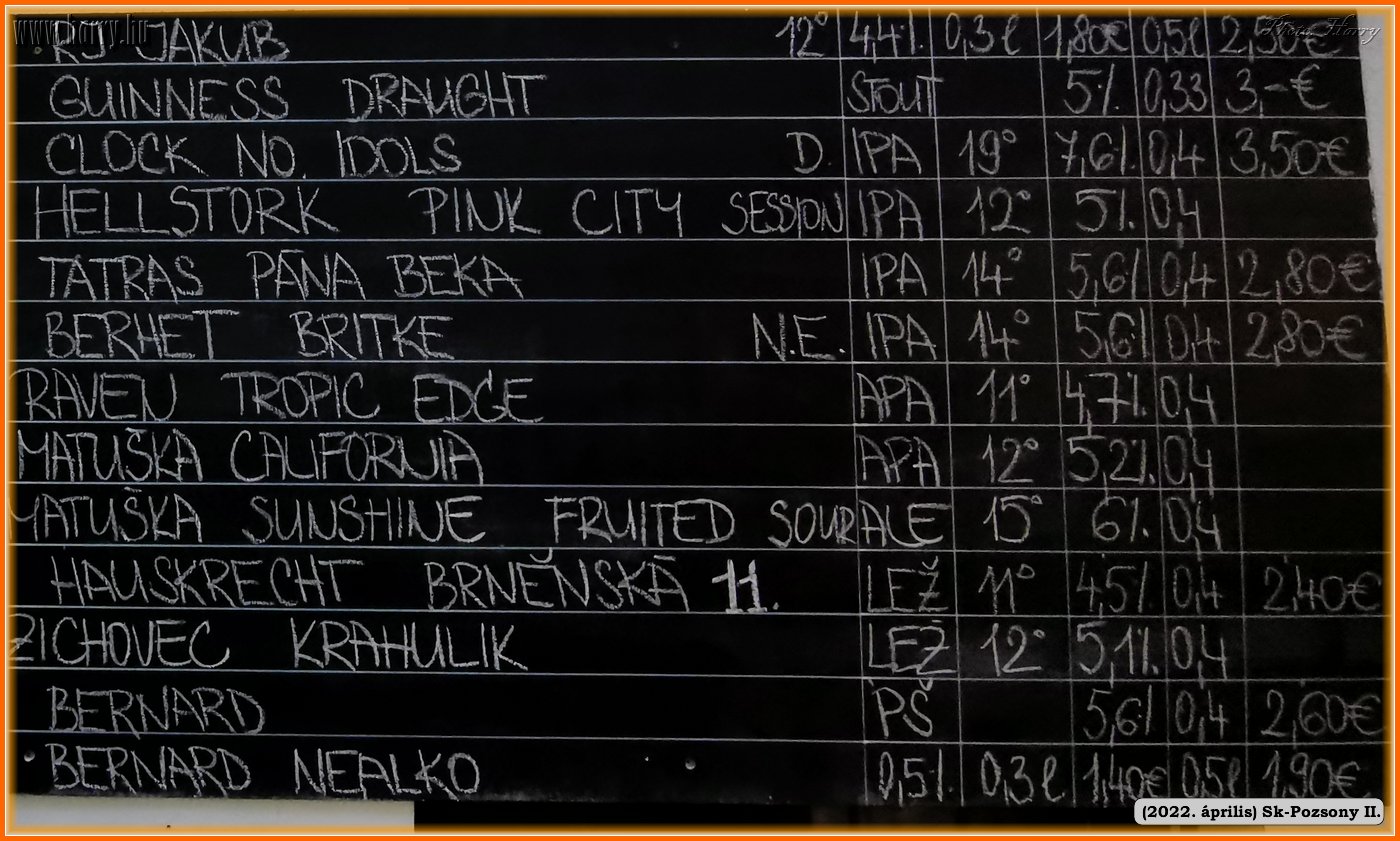 www.harry.hu
Photo Harry
RJ. JAKUB 12° 4,4% 0,3l 1,80€ 0,5l 2,50€
GUINNESS DRAUGHT STOUT 5% 0,33 3,-€
CLOCK NO. IDOLS D. IPA 19° 7,6% 0,4 3,50€
HELLSTORK PINK CITY SESSION IPA 12° 5% 0,4
TATRAS PÁNA BEKA IPA 14° 5,6% 0,4 2,80€
BERHET BRITKE N.E. IPA 14° 5,6% 0,4 2,80€
RAVEN TROPIC EDGE APA 11° 4,7% 0,4
MATUŠKA CALIFORNIA APA 12° 5,2% 0,4
MATUŠKA SUNSHINE FRUITED SOUR ALE 15° 6% 0,4
HAUSKRECHT BRNĚNSKÁ 11. LEŽ 11° 4,5% 0,4 2,40€
ZICHOVEC KRAHULIK LEŽ 12° 5,1% 0,4
BERNARD PŠ 5,6% 0,4 2,60€
BERNARD NEALKO 0,5% 0,3l 1,40€ 0,5l 1,90€
(2022. április) Sk-Pozsony II.